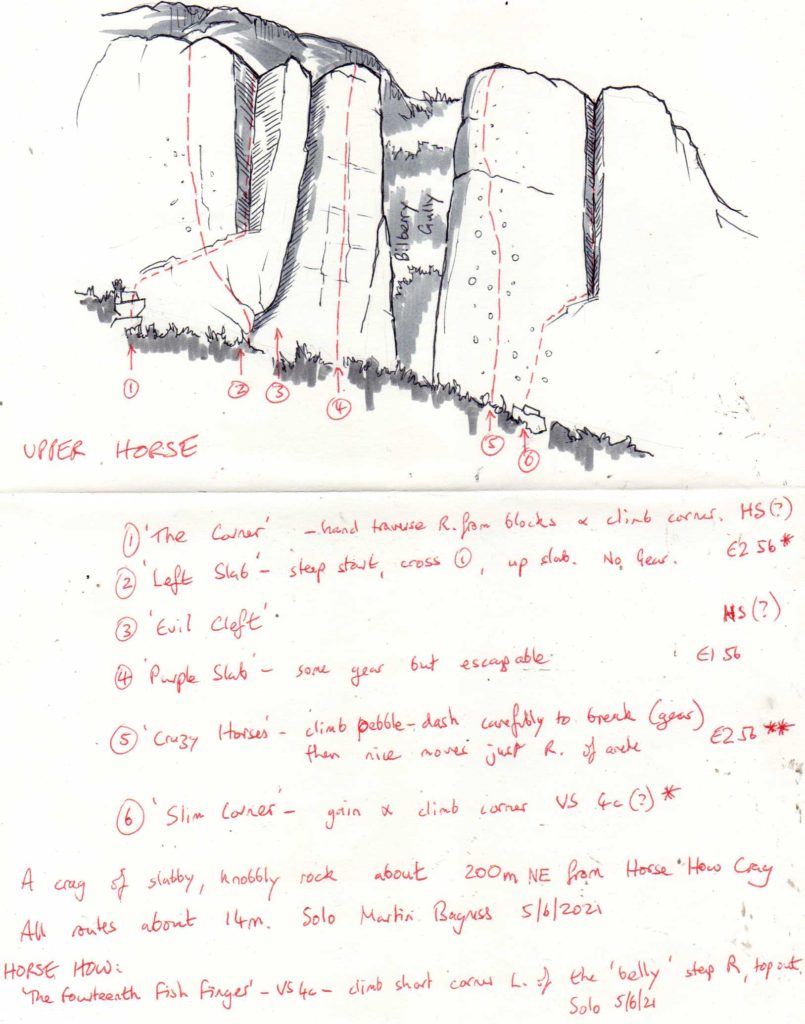 Bilberry
Gully
① ② ③ ④ ⑤ ⑥
UPPER HORSE
① 'The Corner' – hand traverse R. from blocks & climb corner. HS(?)
② 'Left Slab' – steep start, cross ①, up slab. No Gear. E2 5b*
③ 'Evil Cleft' HS(?)
④ 'Purple Slab' – some gear but escapable E1 5b
⑤ 'Crazy Horses' – climb pebble-dash carefully to break (gear)
then nice moves just R. of arete E2 5b**
⑥ 'Slim Corner' – gain & climb corner VS 4c(?)*
A crag of slabby, knobbly rock about 200m NE from Horse How Crag
All routes about 14m. Solo Martin Bagness 5/6/2021
HORSE HOW:
'The Fourteenth Fish Finger' – VS 4c – climb short corner L. of the 'belly' step R, top out.
Solo 5/6/21